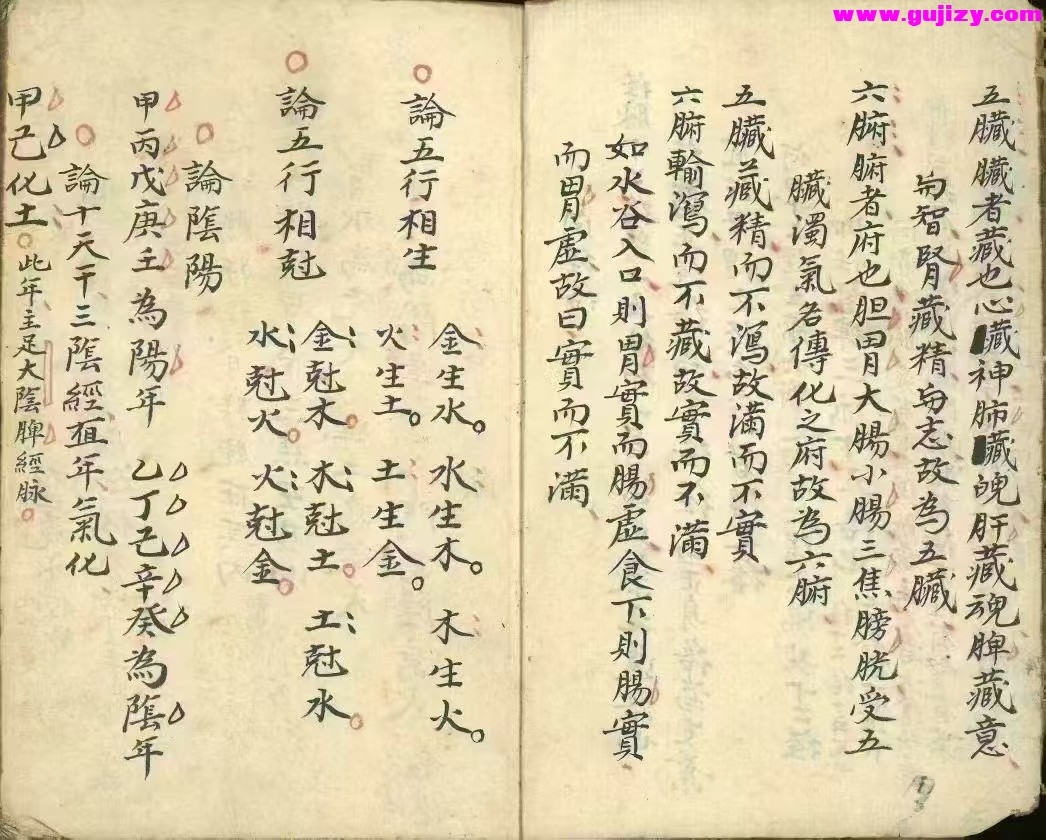 www.gujizy.com
五臟臟者藏也心藏神肺藏魄肝藏魂脾藏意
与智腎藏精与志故為五臟
六腑腑者府也胆胃大腸小腸三焦膀胱受五
臟濁氣名傳化之府故為六腑
五臟藏精而不瀉故滿而不實
六腑輸瀉而不藏故實而不滿
如水谷入口則胃實而腸虛食下則腸實
而胃虛故曰實而不滿
論五行相生 金生水。水生木。木生火。
火生土。土生金。
論五行相尅 金尅木。木尅土。土尅水。
水尅火。火尅金。
論隂陽
甲丙戊庚壬為陽年 乙丁己辛癸為隂年
論十天干三隂經直年氣化
甲己化土。此年主足大隂脾經脉。